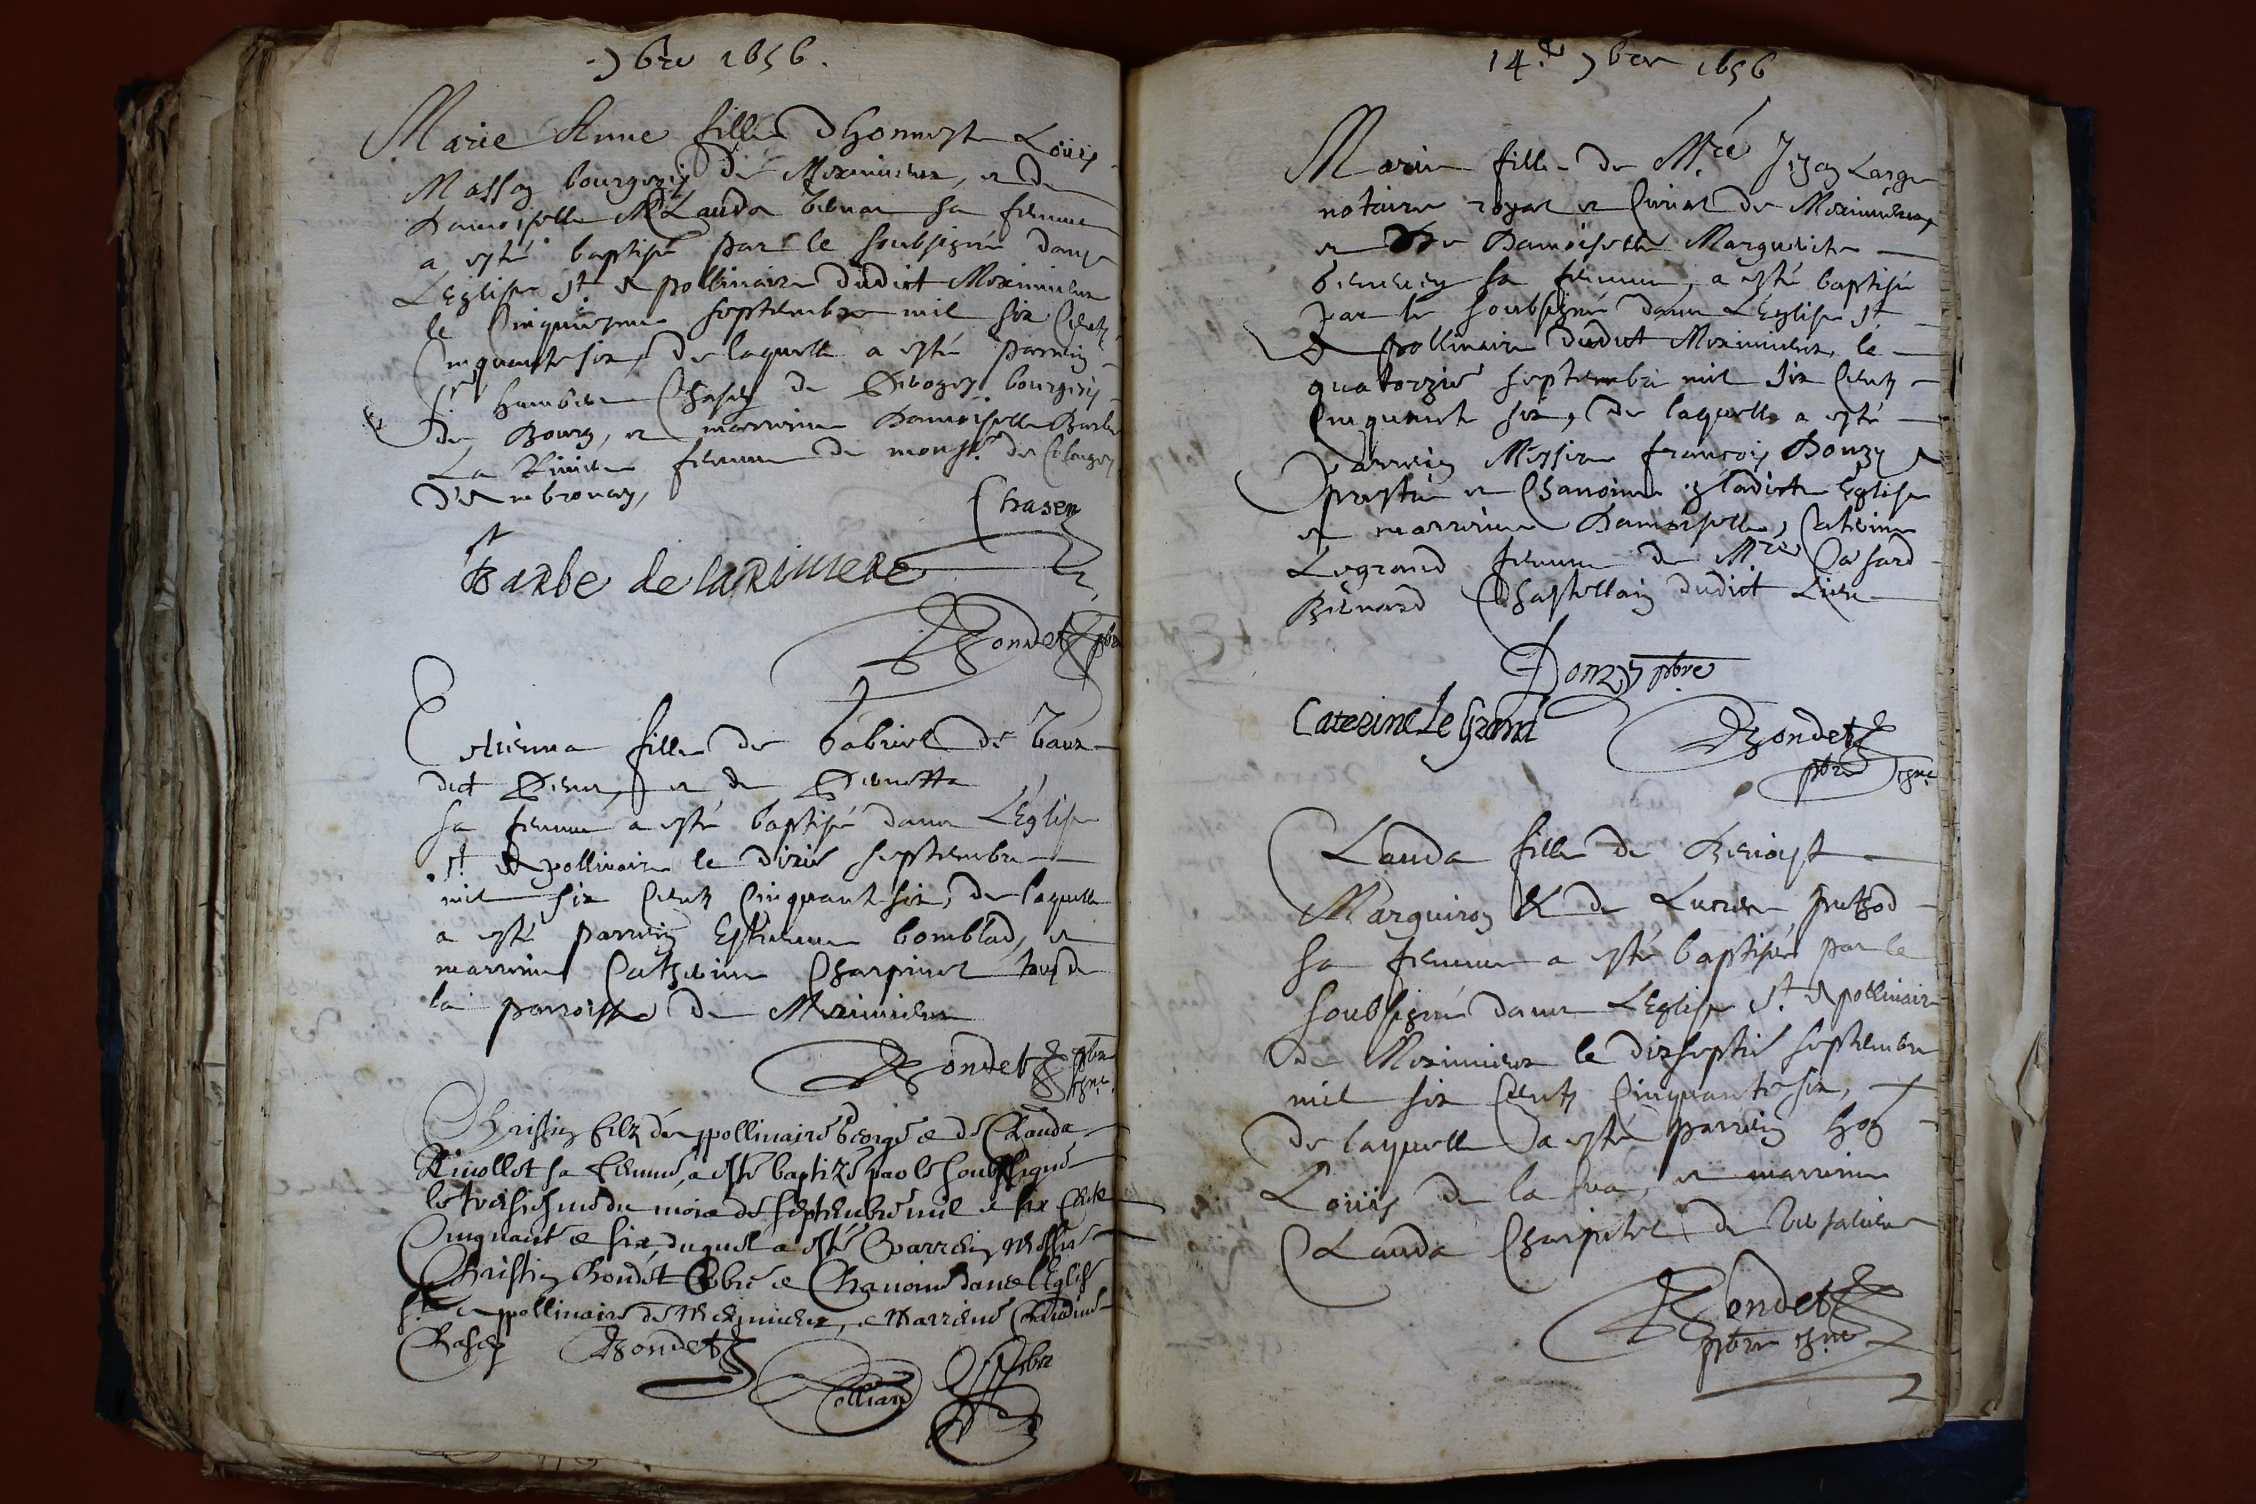 7bre 1656.
Marie Anne fille d'honneste Louis
Masson bourgeois de Meximieux, et de
Damoiselle Clauda sa femme
a esté baptisée par le soubsigné dans
L'Eglise St Appollinaire dudict Meximieux
le Cinquiesme septembre mil six Centz
Cinquante six, de laquelle a esté parrein
Sr humbert Chasey de bourgeois
de Bourg, et marreine Damoiselle Barbe
La Riviere femme de monsr. de
d'Ambronay,
Chasey
Barbe de la Riviere
Bondet pbre
Estienna fille de Gabriel de Vaux
dict et de Pernetta
sa femme a esté baptisé dans L'Eglise
St Appollinaire le dixie septembre
mil six Centz Cinquante six, de laquelle
a esté parrein Estienne Bomblad, et
marreine Catherine Charpinet tous de
la parroisse de Meximieux
Bondet pbre
chne.
Christin filz de Appollinaire George e de Clauda
Rivollet sa femme, a esté baptizé par le soubsigné
le treisiesme du mois de septembre mil e six Cents
Cinquante e six, duquel a esté Parrein Messire
Christin Bondet Pbre e Chanoine dans l'Eglise
St Appollinaire de Meximieux, e Marreine Claudine
Chasey Bondet
Colliard pbre
14.e 7bre 1656
Marie fille de Mre Jehan Large
notaire royal et Curial de Meximieux
et de Damoiselle Marguerite
sa femme, a esté baptisée
par le soubsigné dans L'Eglise St
Appollinaire dudict Meximieux, le
quatorzie septembre mil six Centz
Cinquante six, de laquelle a esté
Parrein Messire françois Donzy
prestre et Chanoine en ladicte Eglise
et marreine Damoiselle Caterine
Legrand femme de Mre Casard
Bernard Chastellain dudict Lieu
Donzy pbre
Caterine Le Grand
Bondet
pbre chne.
Clauda fille de Benoist
Marguiron & de Lucresse
sa femme a esté baptisée par le
soubsigné dans L'Eglise St. Appollinaire
de Meximieux le dixseptie septembre
mil six Centz Cinquante six,
de laquelle a esté parrein hon
Louis de la et marreine
Clauda Charpinet de
Bondet
pbre chne